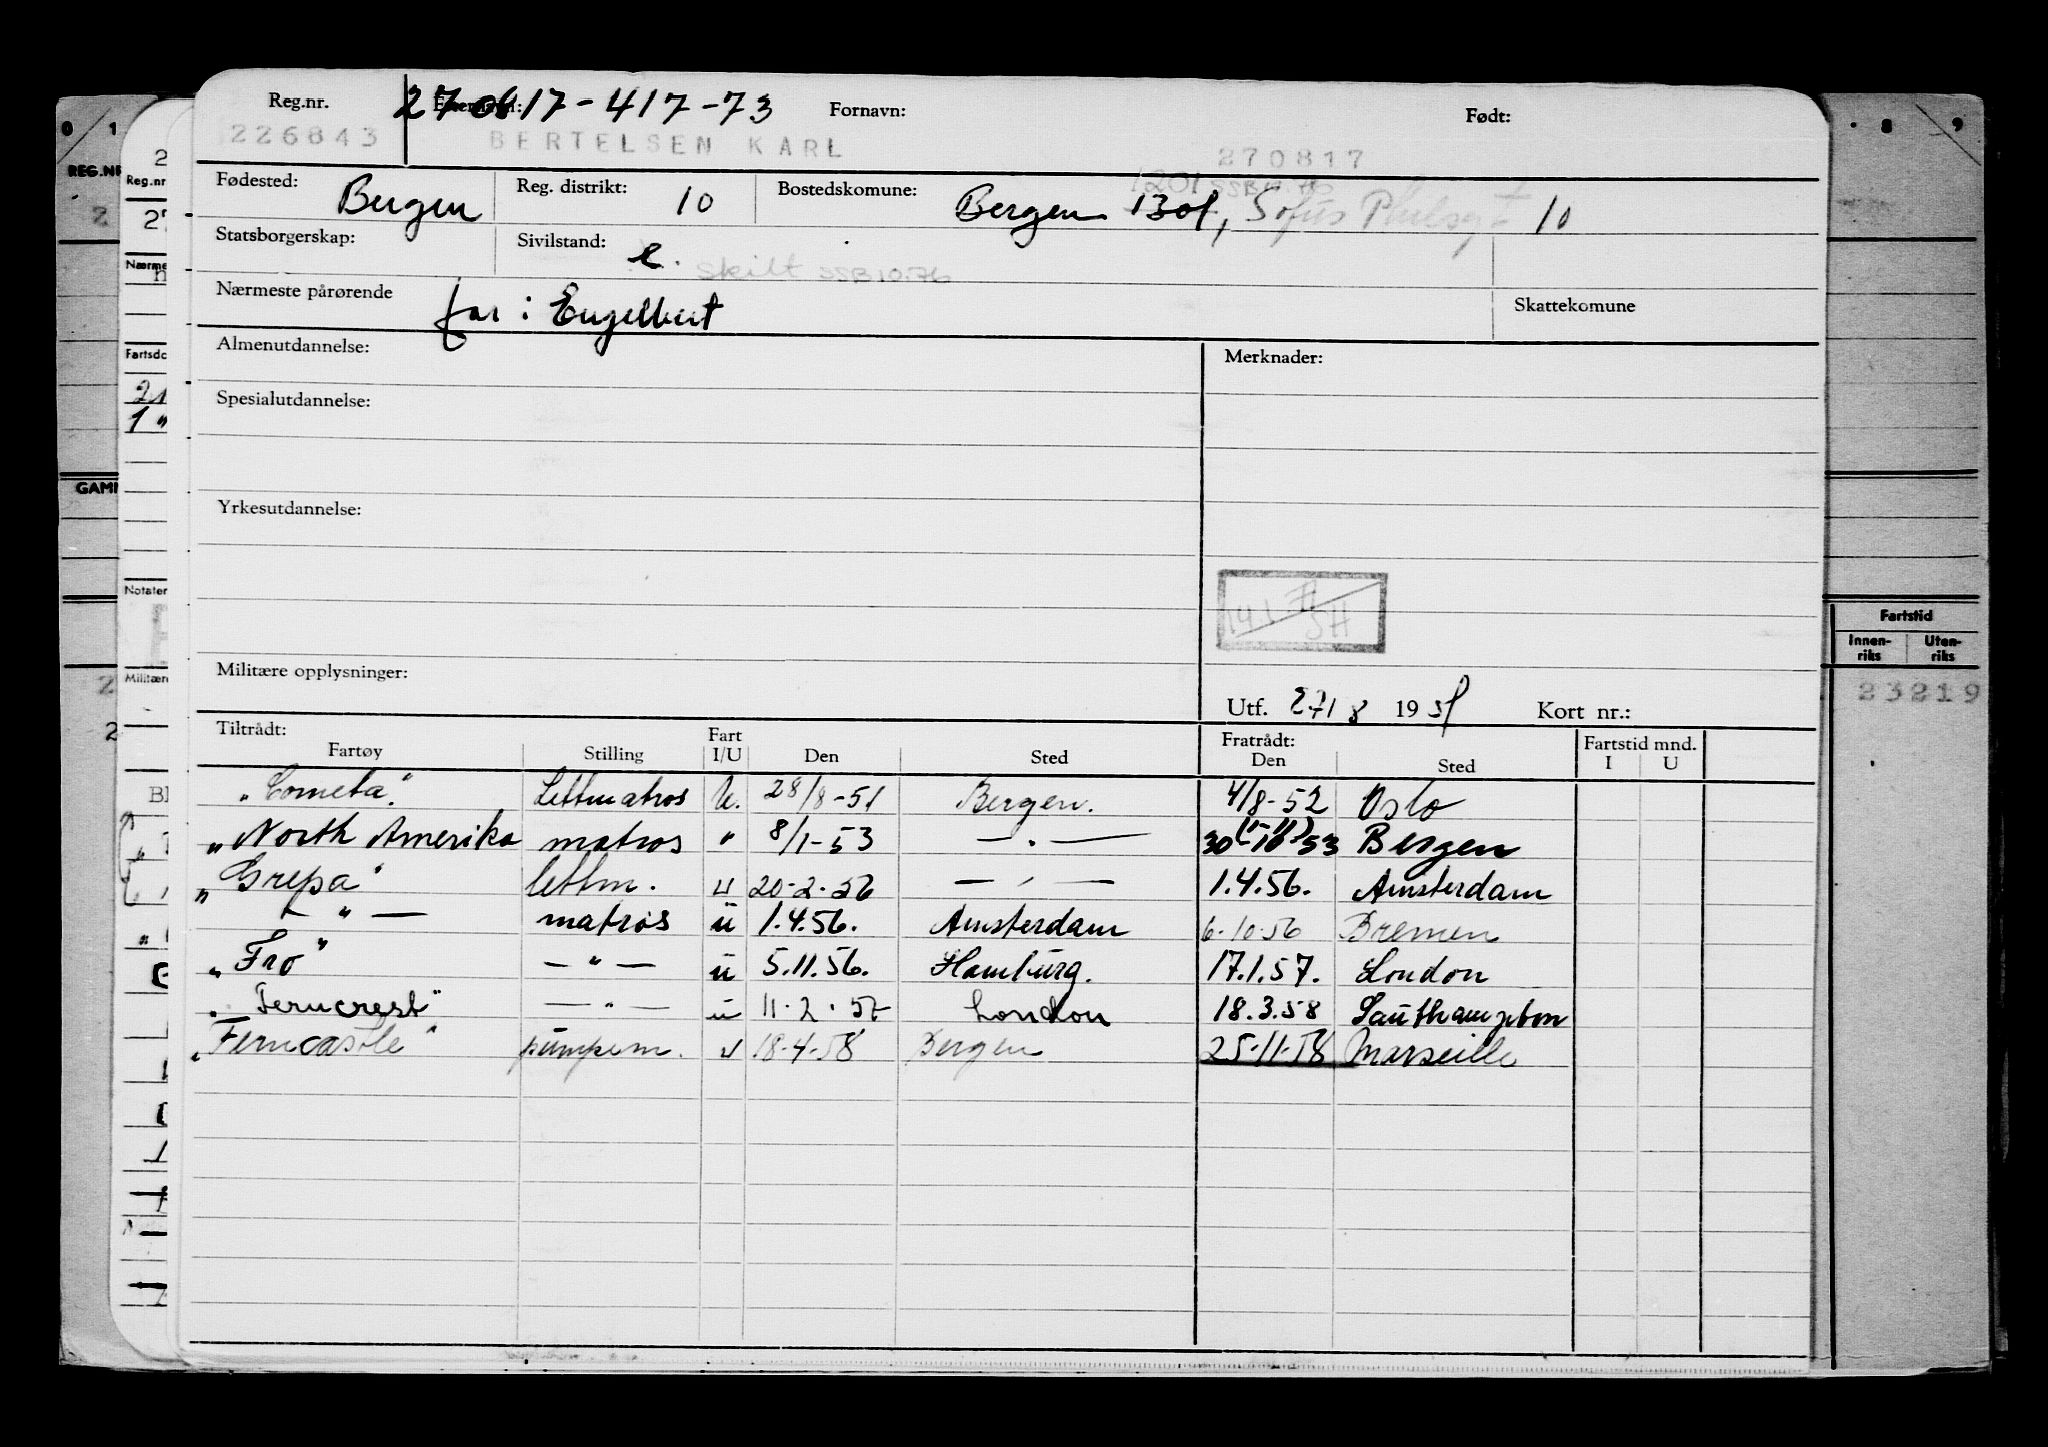 Reg.nr. Etternavn: 270817-417-73 Fornavn: Født:
226843 BERTELSEN KARL 270817
Fødested: Bergen Reg. distrikt: 10 Bostedskomune: Bergen 1301, Sofus 10
1201 SSB 10.76
Statsborgerskap: Sivilstand: e. skilt SSB 10.76
Nærmeste pårørende far: Engelbert Skattekomune
Almenutdannelse: Merknader:
Spesialutdannelse:
Yrkesutdannelse:
SH
Militære opplysninger:
Utf. 27/8 1951 Kort nr.:
Tiltrådt: Fratrådt: Fartstid mnd.
Fartøy Stilling Fart I/U Den Sted Den Sted I U
"Cometa" Lettmatros U. 28/8-51 Bergen. 4/8-52 Oslo
"North Amerika matros " 8/1-53 — " — 30-10-53 Bergen
"Grepa" lettm. u 20-2-56 — " — 1.4.56. Amsterdam
— " — matros u 1.4.56. Amsterdam 6-10-56 Bremen
"Fro" — " — u 5.11.56. Hamburg. 17.1.57. London
"Ferncrest" — " — u 11-2-57 London 18.3.58 Southampton
"Ferncastle" pumpem. u 18-4-58 Bergen 25-11-58 Marseille
0 1
REG.NR
2
Reg.nr
Nærme
Fartsdo
GAMM
Notater
Militære
8 9
Fartstid
Innen-riks Uten-riks
23219